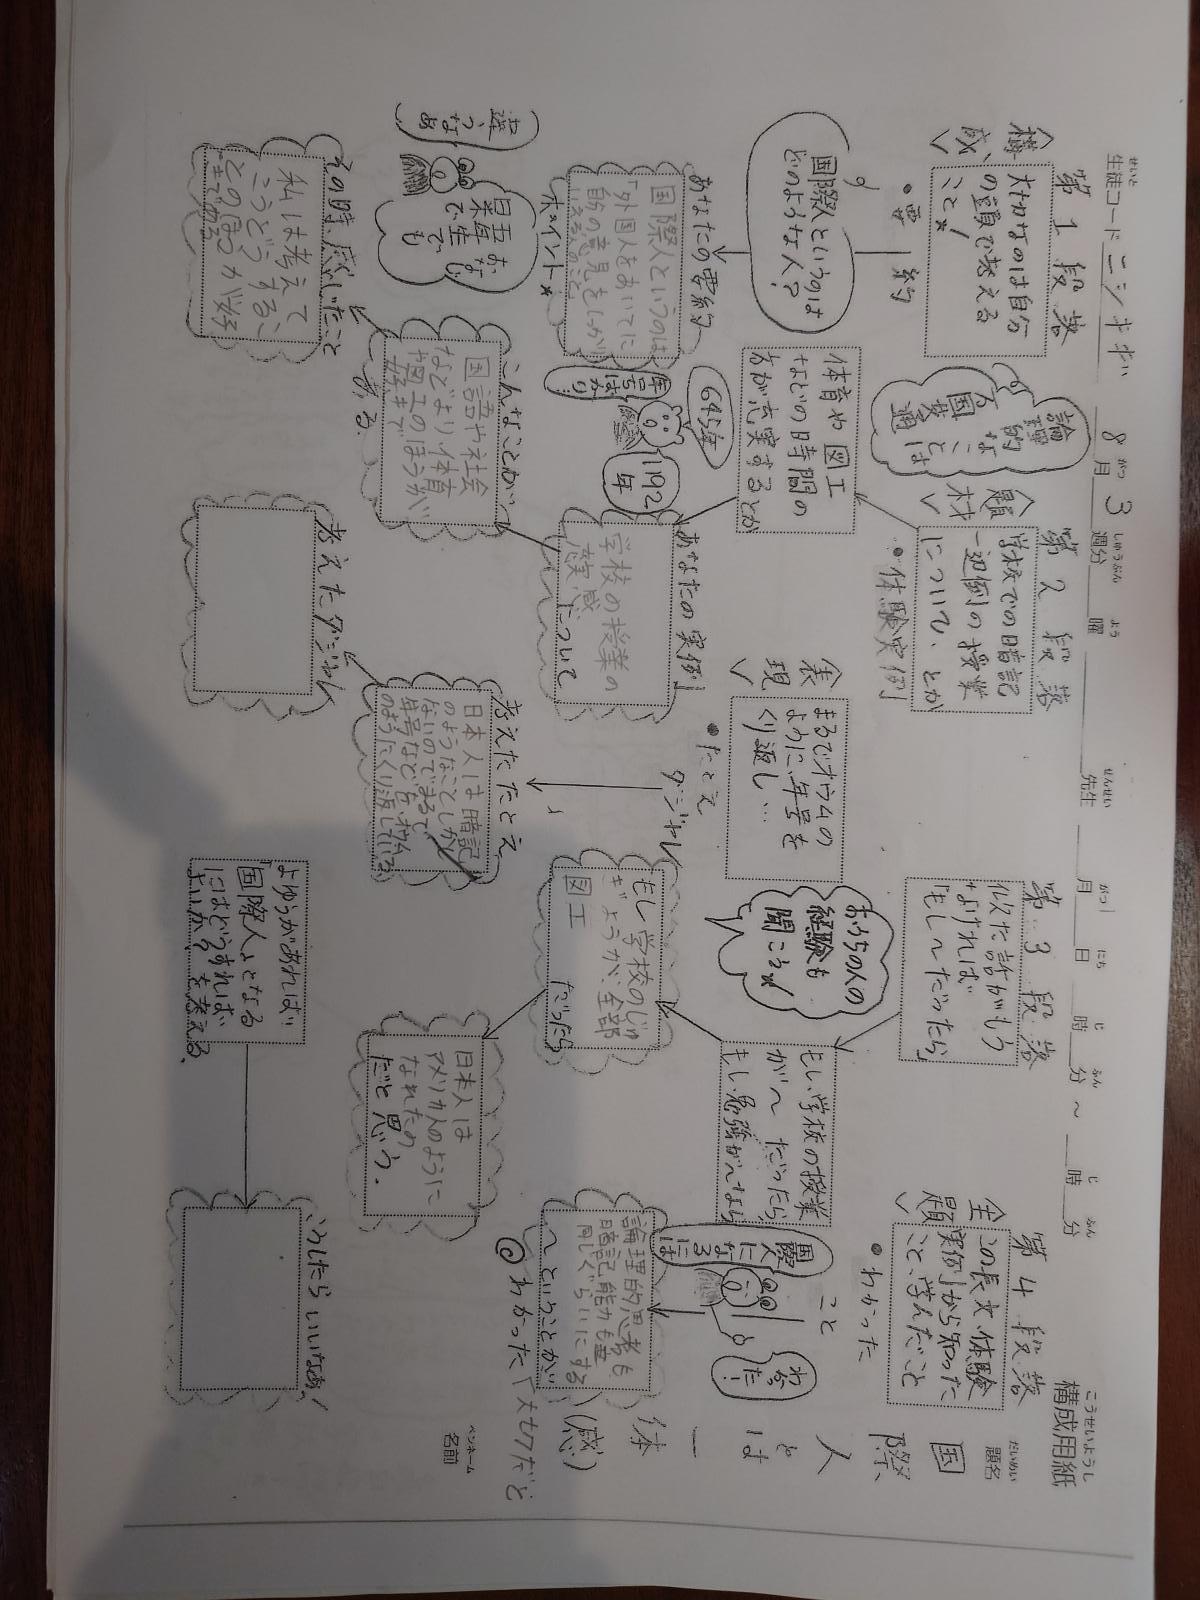 こうせいようし
構成用紙
せいと
生徒コード ニシキギ
8月 3 週分 曜 先生
月 日 時 分 ~ 時 分
だいめい
題名
国際人とは一体
ペンネーム
名前
構成
第1段落
大切なのは自分
の頭で考える
こと★!
・要約
国際人というのは
どのような人?
あなたの要約
国際人というのは
「外国人をあいてに
自分の意見をしっかり
いえる人のこと」
★ポイント★
埼玉県でも
違うなあ
こんなことが
国語や社会
などより、体育
や図工のほうが
好きで
ある。
その時、感じたこと
私は考えて
こうどうするこ
とのほうが好
きである
論理的なことは
万国共通
題材
第2段落
学校での暗記
一辺倒の授業
について、とか
・体験実例
体育や図工
などの時間の
方が充実するとか
645年
1192年
年号ばかり!
あなたの実例
学校の授業の
充実感
について
表現
まるでオウムの
ように、年号を
くり返し…
・たとえ
ダジャレ
考えたたとえ
日本人は暗記
のようなことしか
ないので、まるで
年号などをオウム
のようにくり返している
考えたダジャレ
第3段落
似た話がもう
なければ
「もし~だったら」
おうちの人の
経験も
聞こう★!
もし、学校の授業
が~だったら、
もし勉強が~なら
もし学校のじゅ
ぎょうが、全部
図工
だったら
日本人は
アメリカ人のように
なれたの
だと思う。
よゆうがあれば
「国際人」となる
にはどうすれば
よいか? を考える。
こうしたらいいなあ
主題
第4段落
この長文、体験
実例から知った
こと、学んだこと
・わかった
こと
国際人になるには
わかった!
論理的思考も
暗記能力も全
同じぐらいにする
~ということが
◎わかった(大切だと
(感)